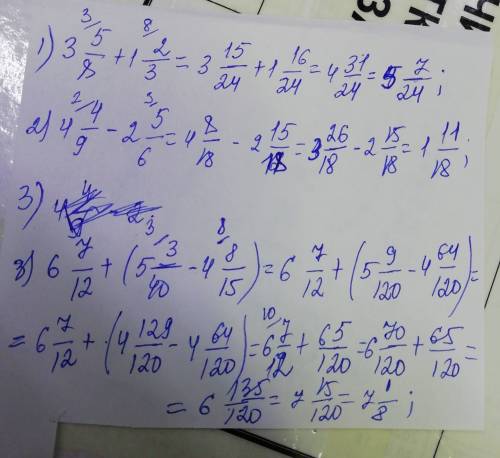 1) 3 5/8 + 1 2/3 = 3 15/24 + 1 16/24 = 4 31/24 = 5 7/24 ;
2) 4 4/9 - 2 5/6 = 4 8/18 - 2 15/18 = 3 26/18 - 2 15/18 = 1 11/18 ;
3)
3) 6 7/12 + (5 3/40 - 4 8/15) = 6 7/12 + (5 9/120 - 4 64/120) =
= 6 7/12 + (4 129/120 - 4 64/120) = 6 7/12 + 65/120 = 6 70/120 + 65/120 =
= 6 135/120 = 7 15/120 = 7 1/8 ;